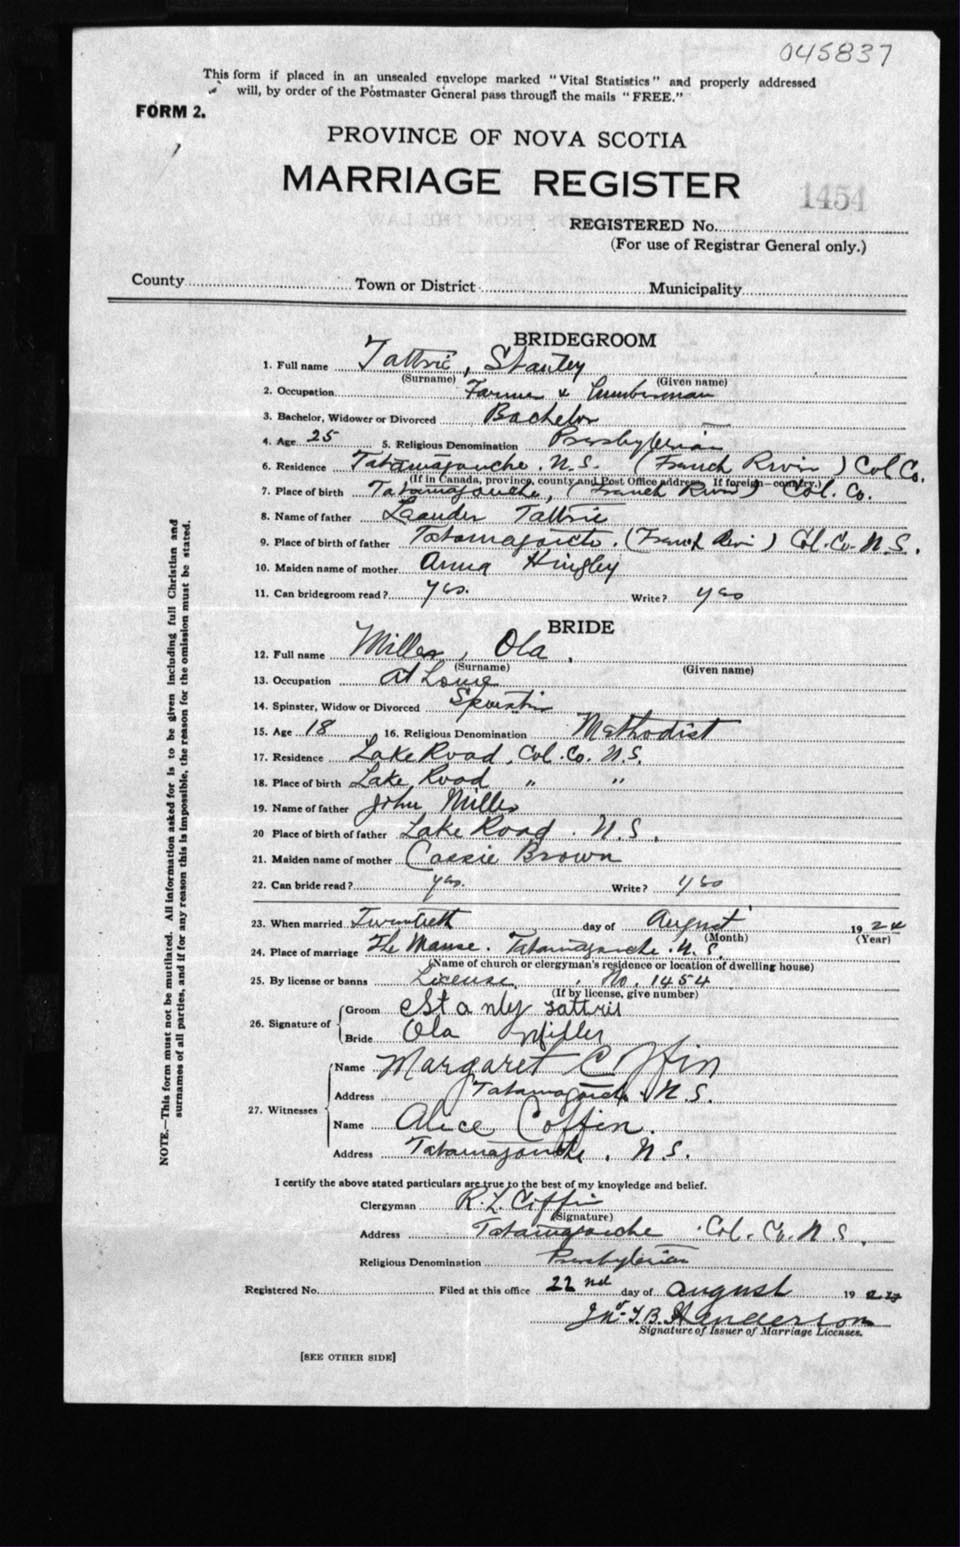 045837
This form if placed in an unsealed envelope marked "Vital Statistics" and properly addressed
will, by order of the Postmaster General pass through the mails "FREE."
FORM 2.
PROVINCE OF NOVA SCOTIA
MARRIAGE REGISTER
1454
REGISTERED No.
(For use of Registrar General only.)
County Town or District Municipality
BRIDEGROOM
1. Full name Tattrie, Stanley
(Surname) (Given name)
2. Occupation Farmer & Lumberman
3. Bachelor, Widower or Divorced Bachelor
4. Age 25 5. Religious Denomination Presbyterian
6. Residence Tatamagouche. N.S. (French River) Col Co.
(If in Canada, province, county and Post Office address. If foreign—country.)
7. Place of birth Tatamagouche, (French River) Col. Co.
8. Name of father Leander Tattrie
9. Place of birth of father Tatamagouche. (French River) Col. Co. N.S.
10. Maiden name of mother Anna Hingley
11. Can bridegroom read? yes. Write? yes
BRIDE
12. Full name Miller, Ola.
(Surname) (Given name)
13. Occupation at home
14. Spinster, Widow or Divorced Spinster
15. Age 18 16. Religious Denomination Methodist
17. Residence Lake Road, Col. Co. N.S.
18. Place of birth Lake Road " "
19. Name of father John Miller
20 Place of birth of father Lake Road. N.S.
21. Maiden name of mother Cassie Brown
22. Can bride read? yes. Write? yes
23. When married Twentieth day of August 1924
(Month) (Year)
24. Place of marriage The Manse. Tatamagouche. N.S.
(Name of church or clergyman's residence or location of dwelling house)
25. By license or banns License, No. 1454
(If by license, give number)
26. Signature of Groom Stanly Tattrie
Bride Ola Miller
27. Witnesses Name Margaret Coffin
Address Tatamagouche. N.S.
Name Alice Coffin.
Address Tatamagouche. N.S.
I certify the above stated particulars are true to the best of my knowledge and belief.
Clergyman R. L. Coffin
(Signature)
Address Tatamagouche. Col. Co. N.S.
Religious Denomination Presbyterian
Registered No. Filed at this office 22nd day of August 19
Jno. T. B. Henderson
Signature of Issuer of Marriage Licenses.
[SEE OTHER SIDE]
NOTE.—This form must not be mutilated. All information asked for is to be given including full Christian and
surnames of all parties, and if for any reason this is impossible, the reason for the omission must be stated.